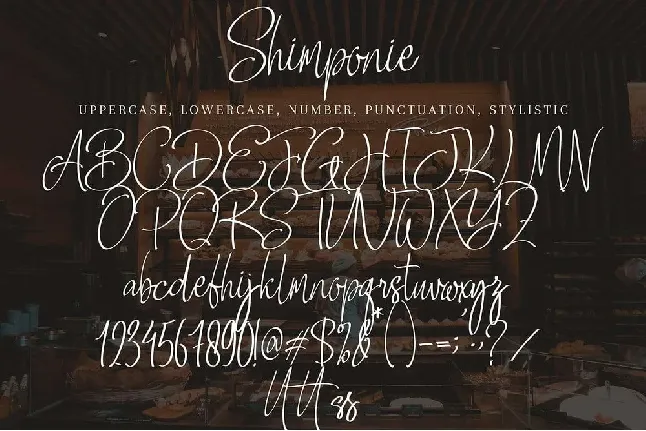 Shimponie
UPPERCASE, LOWERCASE, NUMBER, PUNCTUATION, STYLISTIC
ABCDEFGHIJKLMN
OPQRSTUVWXYZ
abcdefghijklmnopqrstuvwxyz
1234567890!@#$%&*()-=;:.,?/